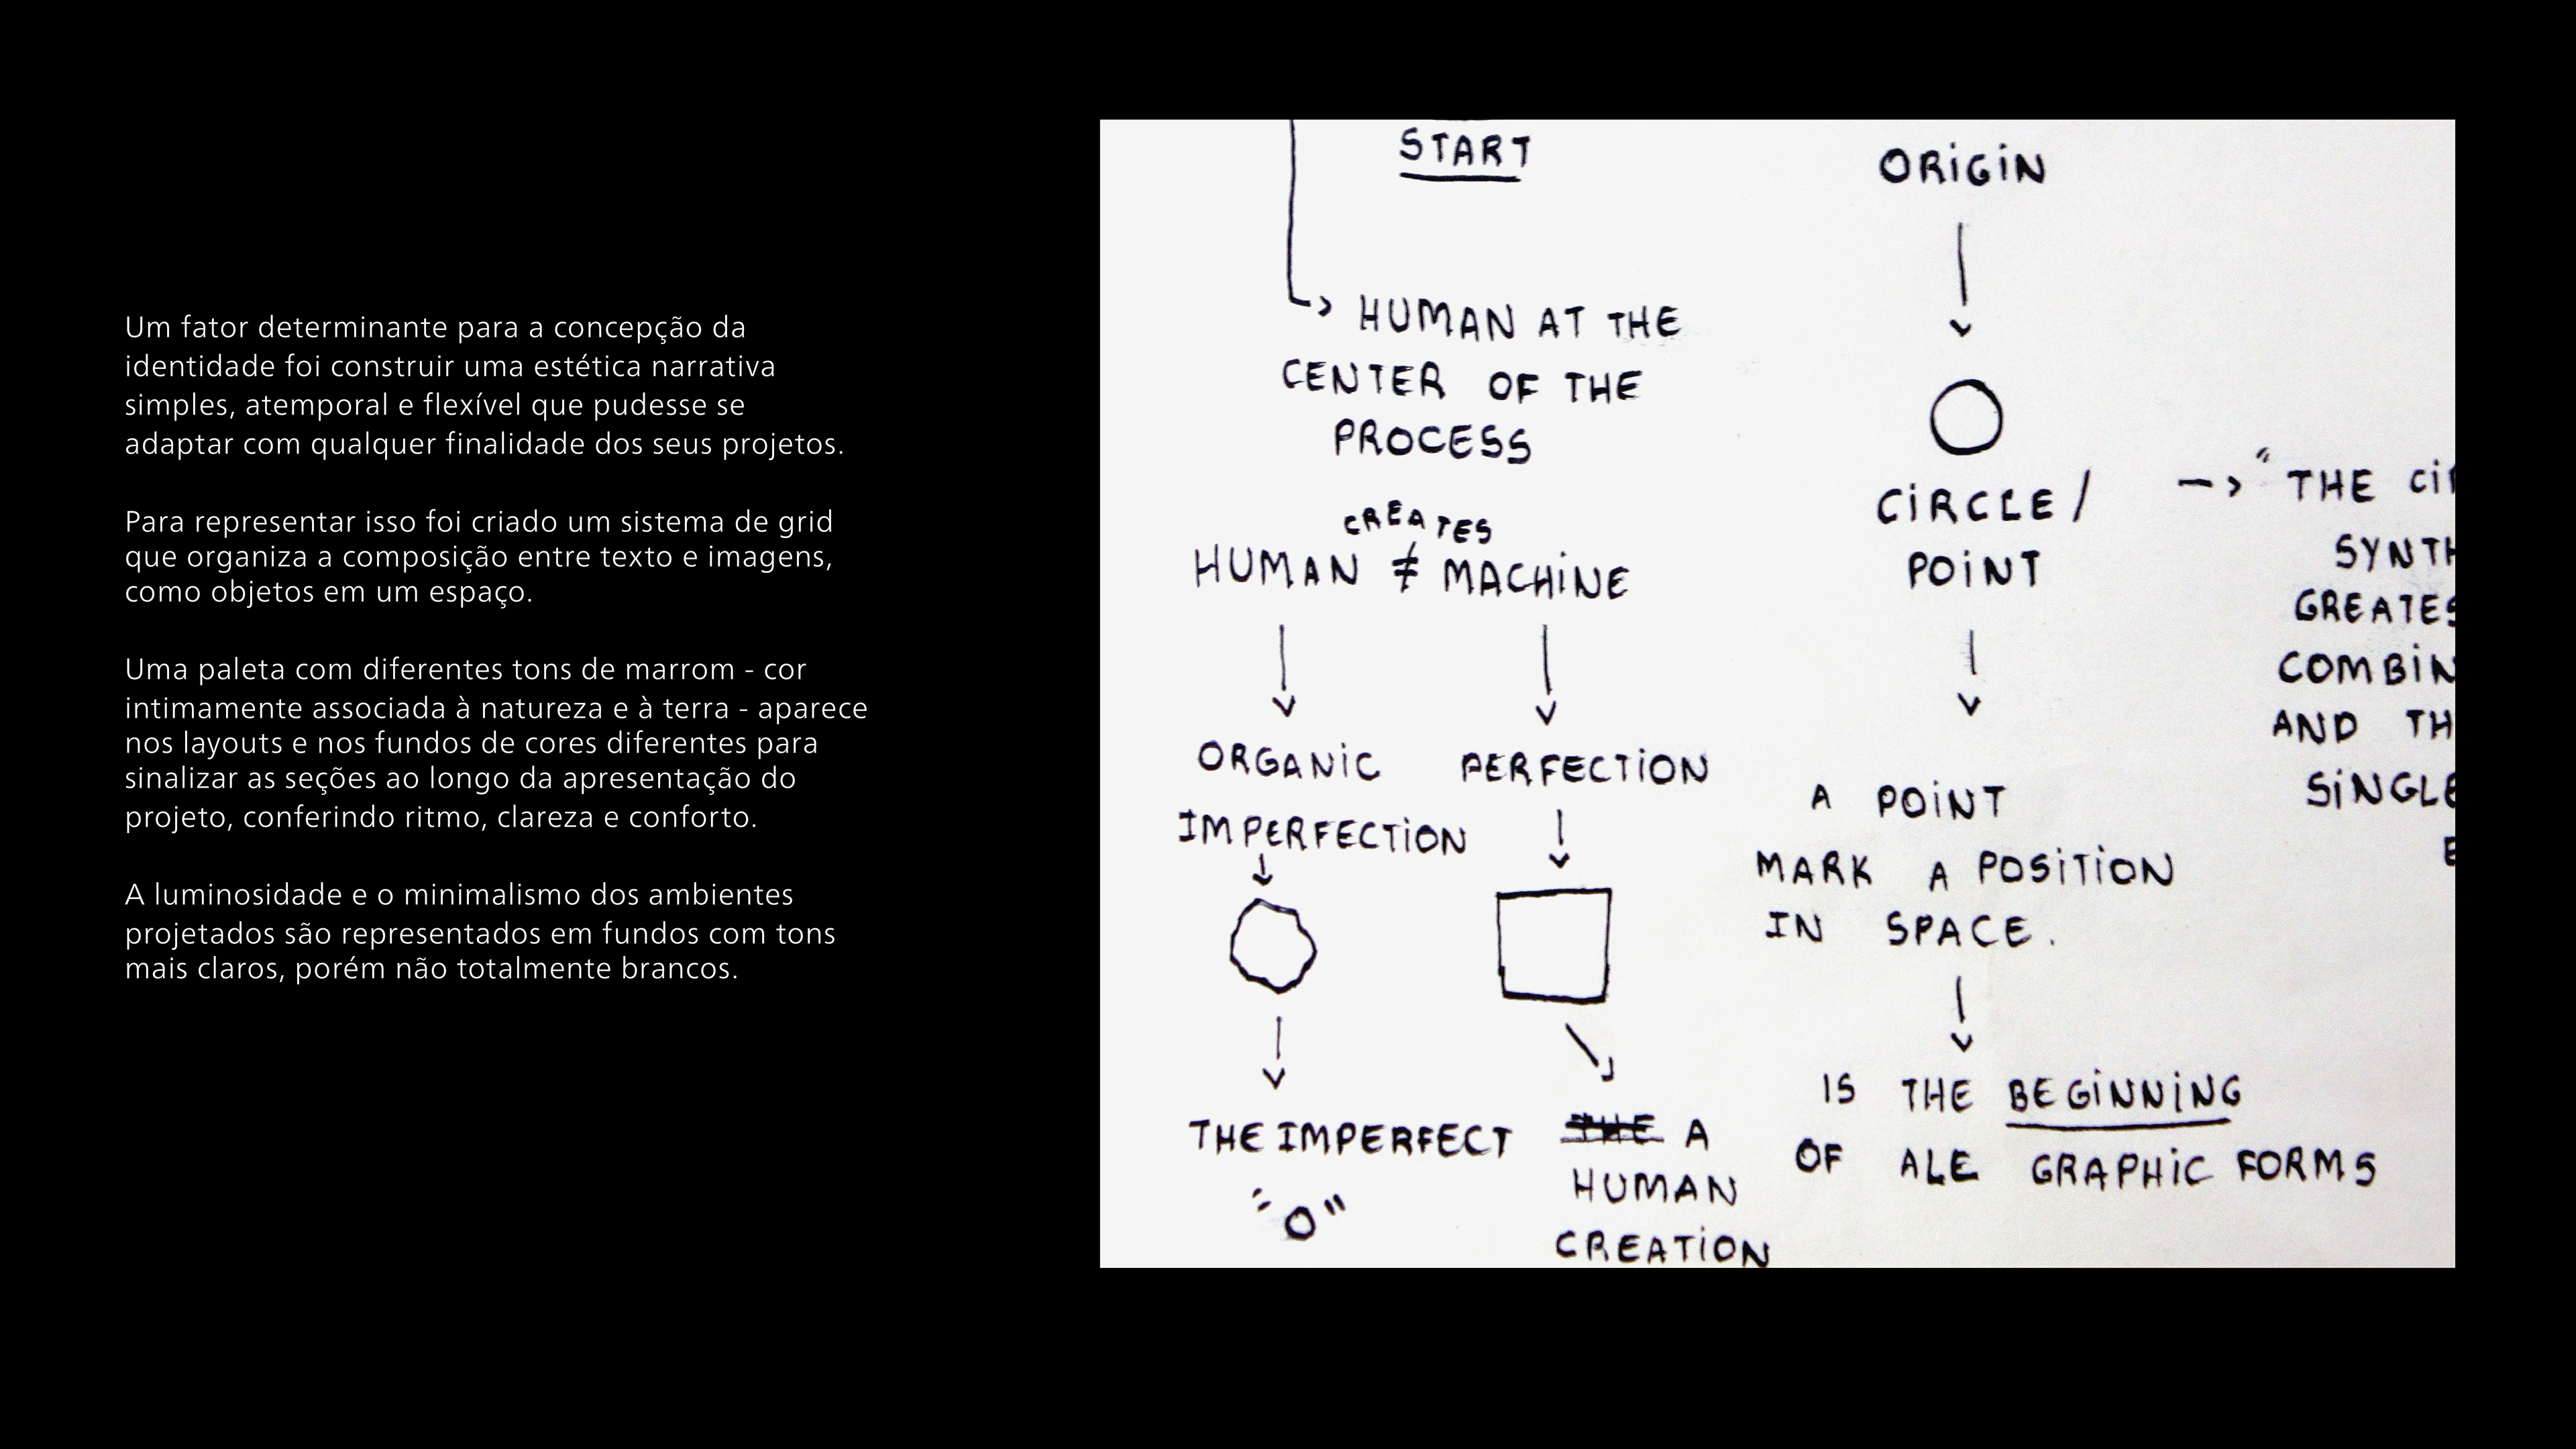 Um fator determinante para a concepção da
identidade foi construir uma estética narrativa
simples, atemporal e flexível que pudesse se
adaptar com qualquer finalidade dos seus projetos.
Para representar isso foi criado um sistema de grid
que organiza a composição entre texto e imagens,
como objetos em um espaço.
Uma paleta com diferentes tons de marrom - cor
intimamente associada à natureza e à terra - aparece
nos layouts e nos fundos de cores diferentes para
sinalizar as seções ao longo da apresentação do
projeto, conferindo ritmo, clareza e conforto.
A luminosidade e o minimalismo dos ambientes
projetados são representados em fundos com tons
mais claros, porém não totalmente brancos.
START
HUMAN AT THE
CENTER OF THE
PROCESS
CREATES
HUMAN ≠ MACHINE
ORGANIC
IMPERFECTION
PERFECTION
THE IMPERFECT
"O"
THE A
HUMAN
CREATION
ORIGIN
CIRCLE /
POINT
A POINT
MARK A POSITION
IN SPACE.
IS THE BEGINNING
OF ALE GRAPHIC FORMS
"THE
COMBIN
AND TH
SINGLE